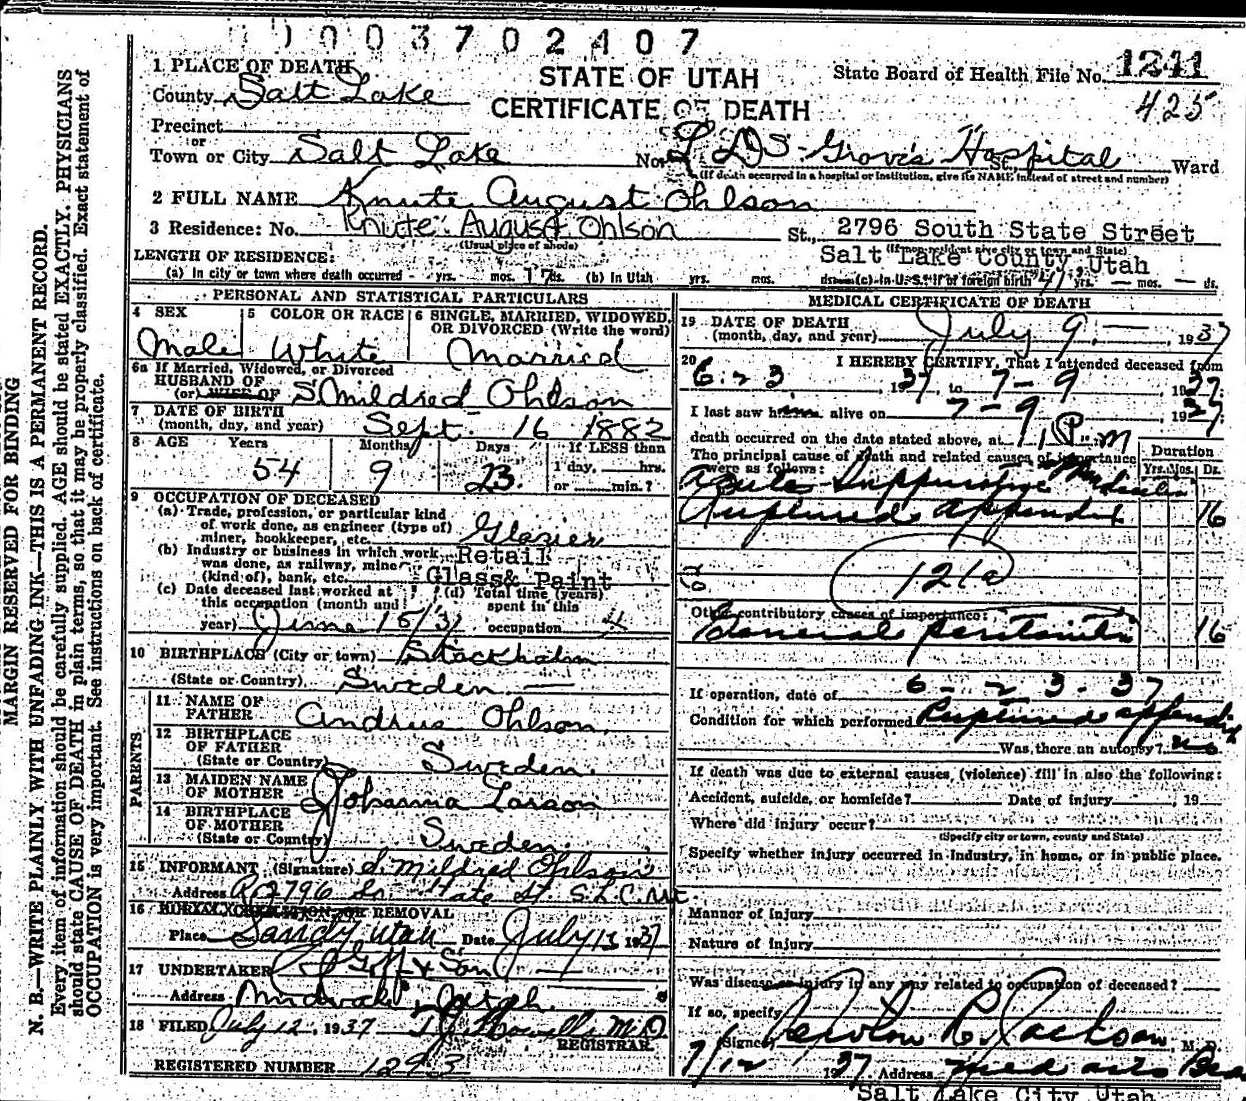 0003702407
1 PLACE OF DEATH
County Salt Lake
STATE OF UTAH
CERTIFICATE OF DEATH
State Board of Health File No. 1241
425
Precinct
or
Town or City Salt Lake No. L D S. Groves Hospital St., Ward
(If death occurred in a hospital or institution, give its NAME instead of street and number)
2 FULL NAME Knute August Ohlson
3 Residence: No. Knute August Ohlson St., 2796 South State Street
(Usual place of abode) (If non-resident give city or town and State)
Salt Lake County, Utah
LENGTH OF RESIDENCE:
(a) In city or town where death occurred - yrs. mos. 17 ds. (b) In Utah yrs. mos. ds. (c) In U. S. if of foreign birth 47 yrs. — mos. — ds.
PERSONAL AND STATISTICAL PARTICULARS
4 SEX
Male
5 COLOR OR RACE
White
6 SINGLE, MARRIED, WIDOWED, OR DIVORCED (Write the word)
Married
6a If Married, Widowed, or Divorced
HUSBAND OF
(or) WIFE OF S. Mildred Ohlson
7 DATE OF BIRTH
(month, day, and year) Sept. 16 1882
8 AGE Years Months Days If LESS than
54 9 23. 1 day, hrs.
or min.?
9 OCCUPATION OF DECEASED
(a) Trade, profession, or particular kind
of work done, as engineer (type of)
miner, bookkeeper, etc. Glazier
(b) Industry or business in which work
was done, as railway, mine
(kind of), bank, etc. Retail
Glass & Paint
(c) Date deceased last worked at
this occupation (month and
year) June 15/37
(d) Total time (years)
spent in this
occupation 4
10 BIRTHPLACE (City or town) Stockholm
(State or Country) Sweden —
PARENTS
11 NAME OF
FATHER Andrus Ohlson.
12 BIRTHPLACE
OF FATHER
(State or Country) Sweden.
13 MAIDEN NAME
OF MOTHER Johanna Larson
14 BIRTHPLACE
OF MOTHER
(State or Country) Sweden.
15 INFORMANT (Signature) S. Mildred Ohlson
Address R. 2796 So. State St. S.L.C. Ut.
16 BURIAL, CREMATION, OR REMOVAL
Place Sandy Utah Date July 13 1937
17 UNDERTAKER Goff & Son
Address Midvale, Utah.
18 FILED July 12, 1937 M.D.
REGISTRAR
REGISTERED NUMBER 1293
MEDICAL CERTIFICATE OF DEATH
19 DATE OF DEATH
(month, day, and year) July 9. — 1937
20 I HEREBY CERTIFY, That I attended deceased from
6-23, 1937, to 7-9, 1937.
I last saw him alive on 7-9, 1937.
death occurred on the date stated above, at 1 P. m
The principal cause of death and related causes of importance
were as follows:
Duration
Yrs. Mos. Ds.
Acute Suppurative Appendicitis
Ruptured appendix 16
121a
Other contributory causes of importance:
General peritonitis 16
If operation, date of 6-23-37
Condition for which performed Ruptured appendix
Was there an autopsy? no
If death was due to external causes, (violence) fill in also the following:
Accident, suicide, or homicide? Date of injury , 19
Where did injury occur?
(Specify city or town, county and State)
Specify whether injury occurred in Industry, in home, or in public place.
Manner of injury
Nature of injury
Was disease or injury in any way related to occupation of deceased?
If so, specify
(Signed) Newton R. Jackson, M. D.
7/12 1937. Address Med Arts
Salt Lake City Utah
MARGIN RESERVED FOR BINDING
N. B.—WRITE PLAINLY WITH UNFADING INK—THIS IS A PERMANENT RECORD.
Every item of information should be carefully supplied. AGE should be stated EXACTLY. PHYSICIANS
should state CAUSE OF DEATH in plain terms, so that it may be properly classified. Exact statement of
OCCUPATION is very important. See instructions on back of certificate.